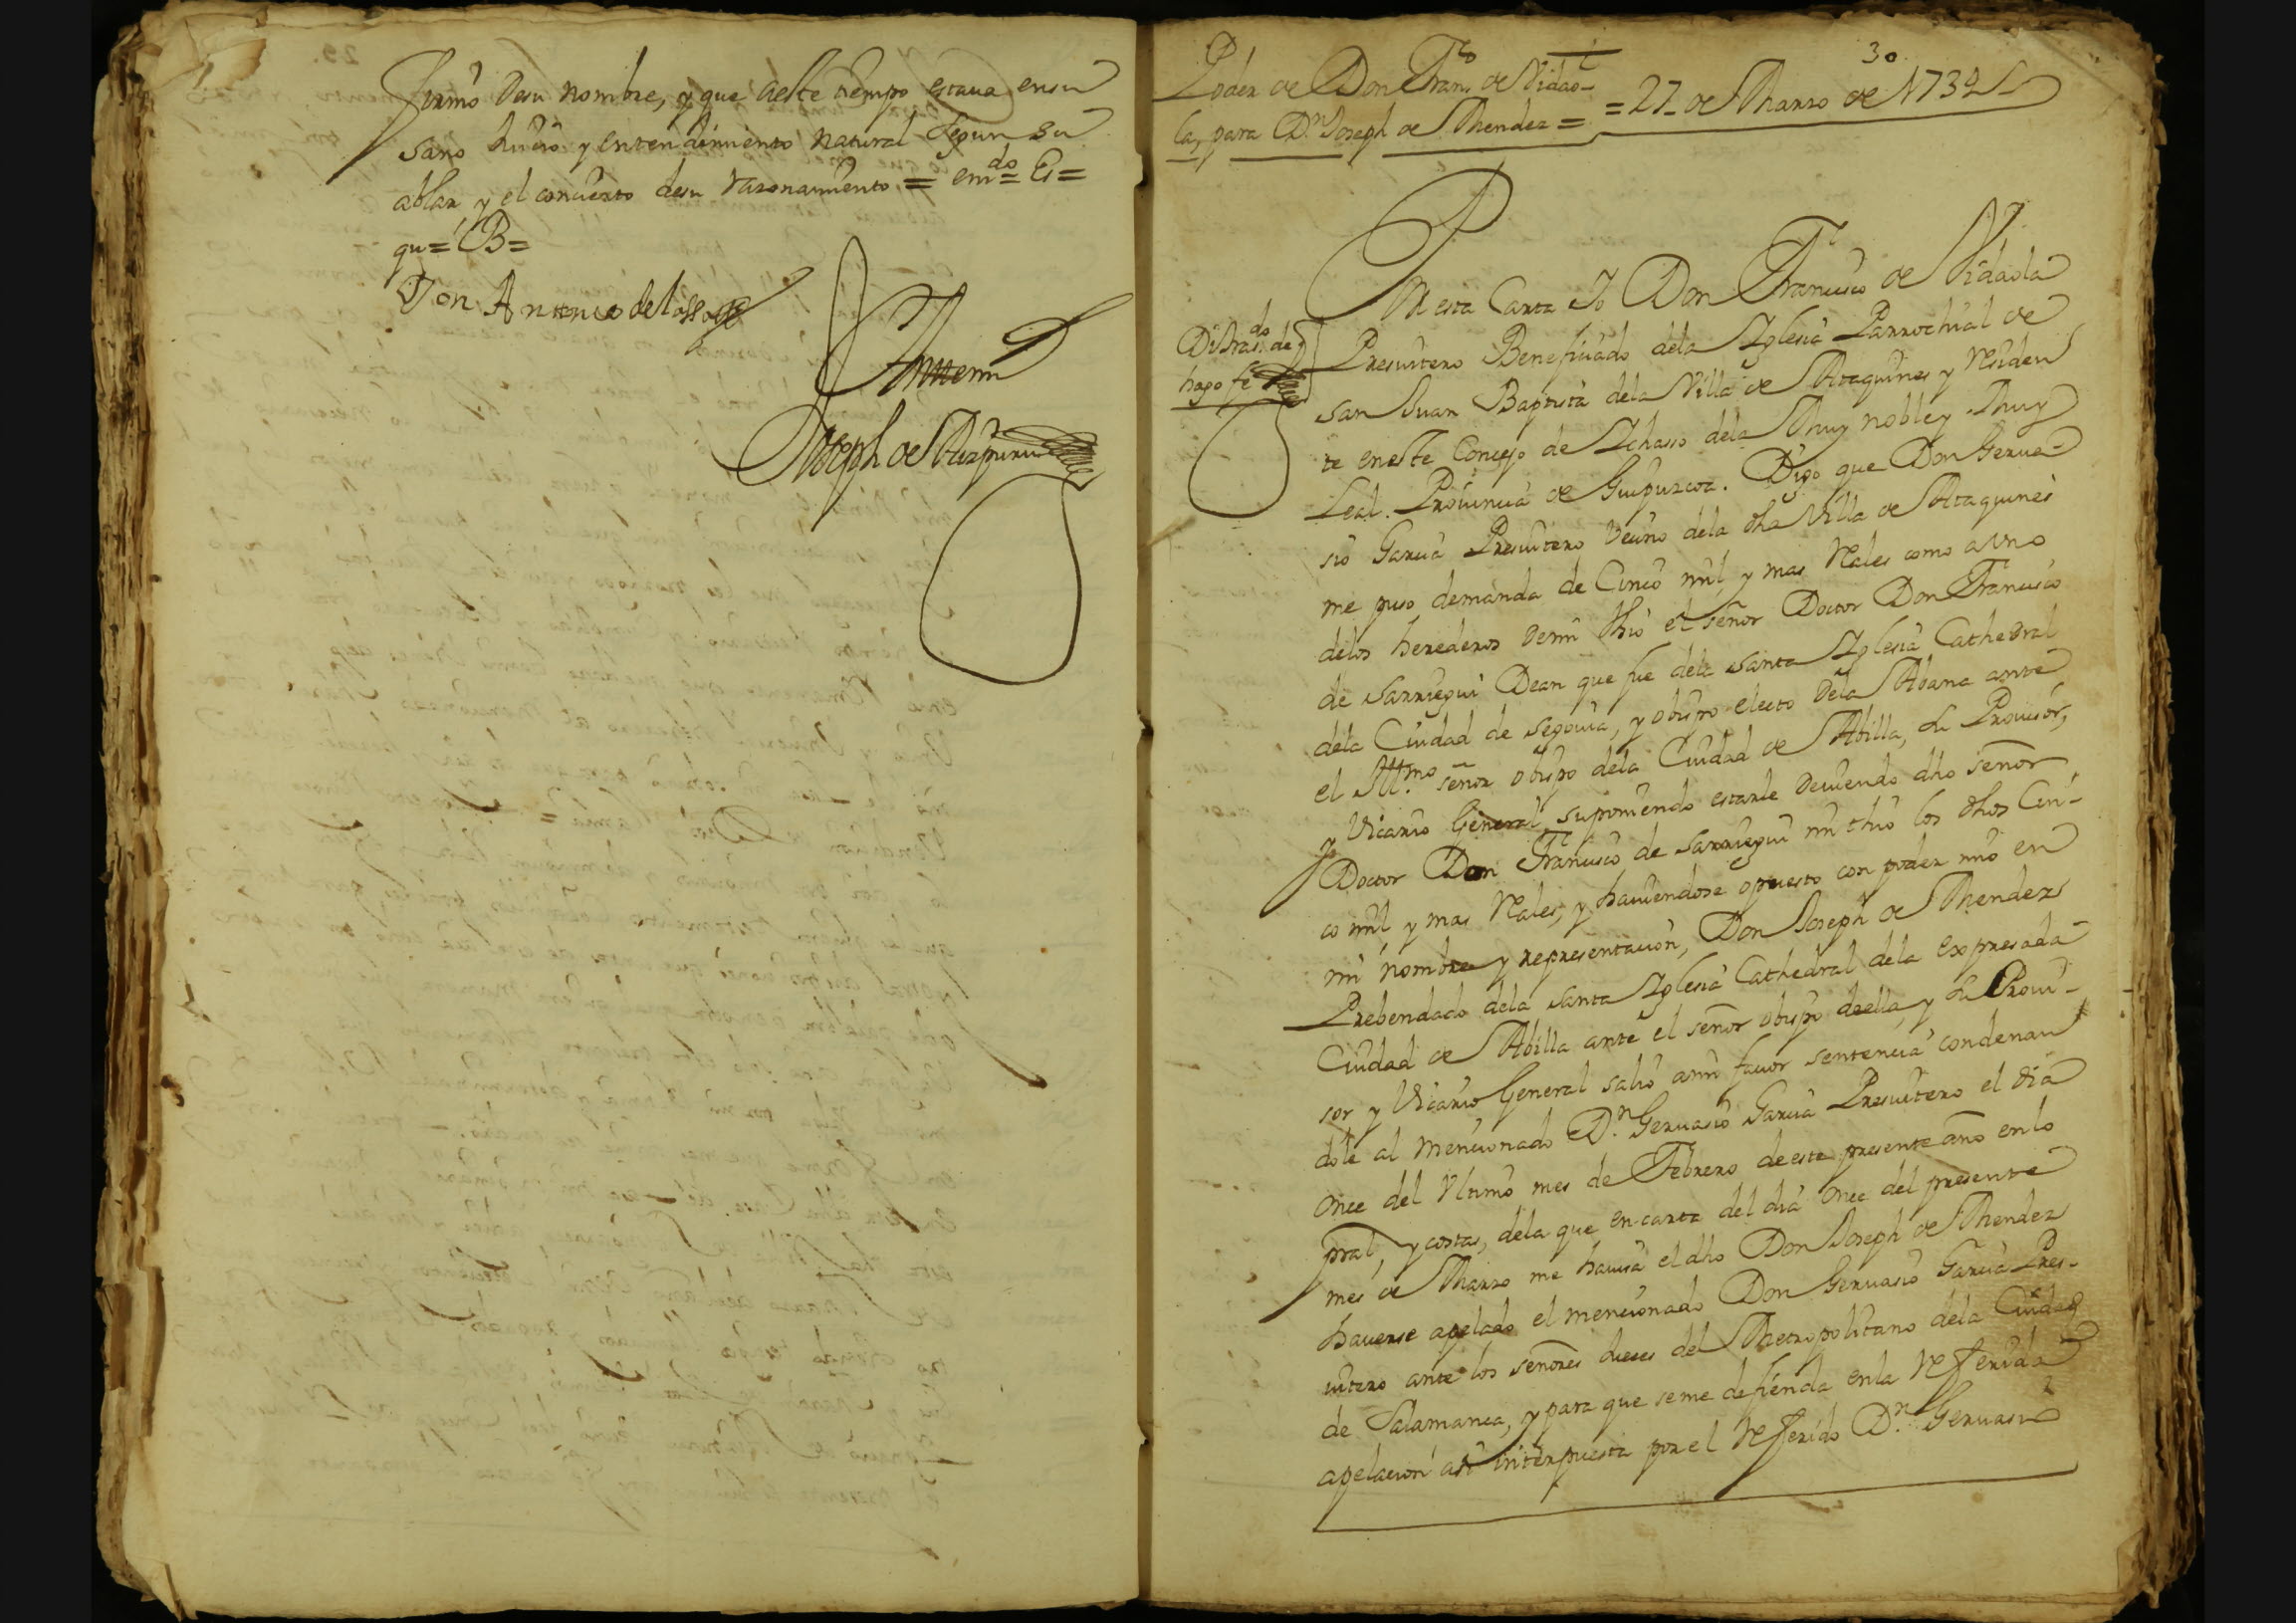 firmó desu nombre, y que aeste tiempo estava ensu
sano Juicio y entendimiento natural segun su
ablar, y el concierto desu razonamiento = em.do = Es =
qu = B =
Don Antonio de
Antemi
Joseph de Aizpuru
30
Poder de Don Fran.co de Vidao-
la, para D.n Joseph de Mendez =
= 27 de Marzo de 1732
En esta Carta Yo Don Francisco de Vidaola
Presvitero Beneficiado dela Iglesia Parrochial de
san Juan Baptista dela Villa de Ataquines y residen
te eneste Concejo de Ichaso dela Muy noble y Muy
Leal Provincia de Guipuzcoa. Digo que Don Gerva-
sio Garcia Presvitero vecino dela dha Villa de Ataquines
me puso demanda de Cinco mil, y mas Reales como a vno
delos herederos demi thio el señor Doctor Don Francisco
de Sarriegui Dean que fue dela santa Iglesia Cathedral
dela Ciudad de Segovia, y obispo electo dela Abana ante
el Ill.mo señor obispo dela Ciudad de Abilla, su Provisor,
y Vicario General, suponiendo estarle deviendo dho señor
Doctor Don Francisco de Sarriegui mi thio los dhos Cin-
co mil y mas Reales, y haviendose opuesto con poder mio en
mi nombre y representacion, Don Joseph de Mendez
Prebendado dela santa Iglesia Cathedral dela expresada
Ciudad de Abilla ante el señor obispo deella, y su Provi-
sor y Vicario General salió ami favor sentencia condenan
dole al mencionado D.n Gervasio Garcia Presvitero el dia
once del vltimo mes de Febrero deeste presente año enlo
pral, y costas, dela que en carta del dia once del presente
mes de Marzo me havisa el dho Don Joseph de Mendez
haverse apelado el mencionado Don Gervasio Garcia Pres-
vitero ante los señores Jueces del Metropolitano dela Ciudad
de Salamanca, y para que seme defienda enla Referida
apelacion asi interpuesta por el Referido D.n Gervasio
hago fe